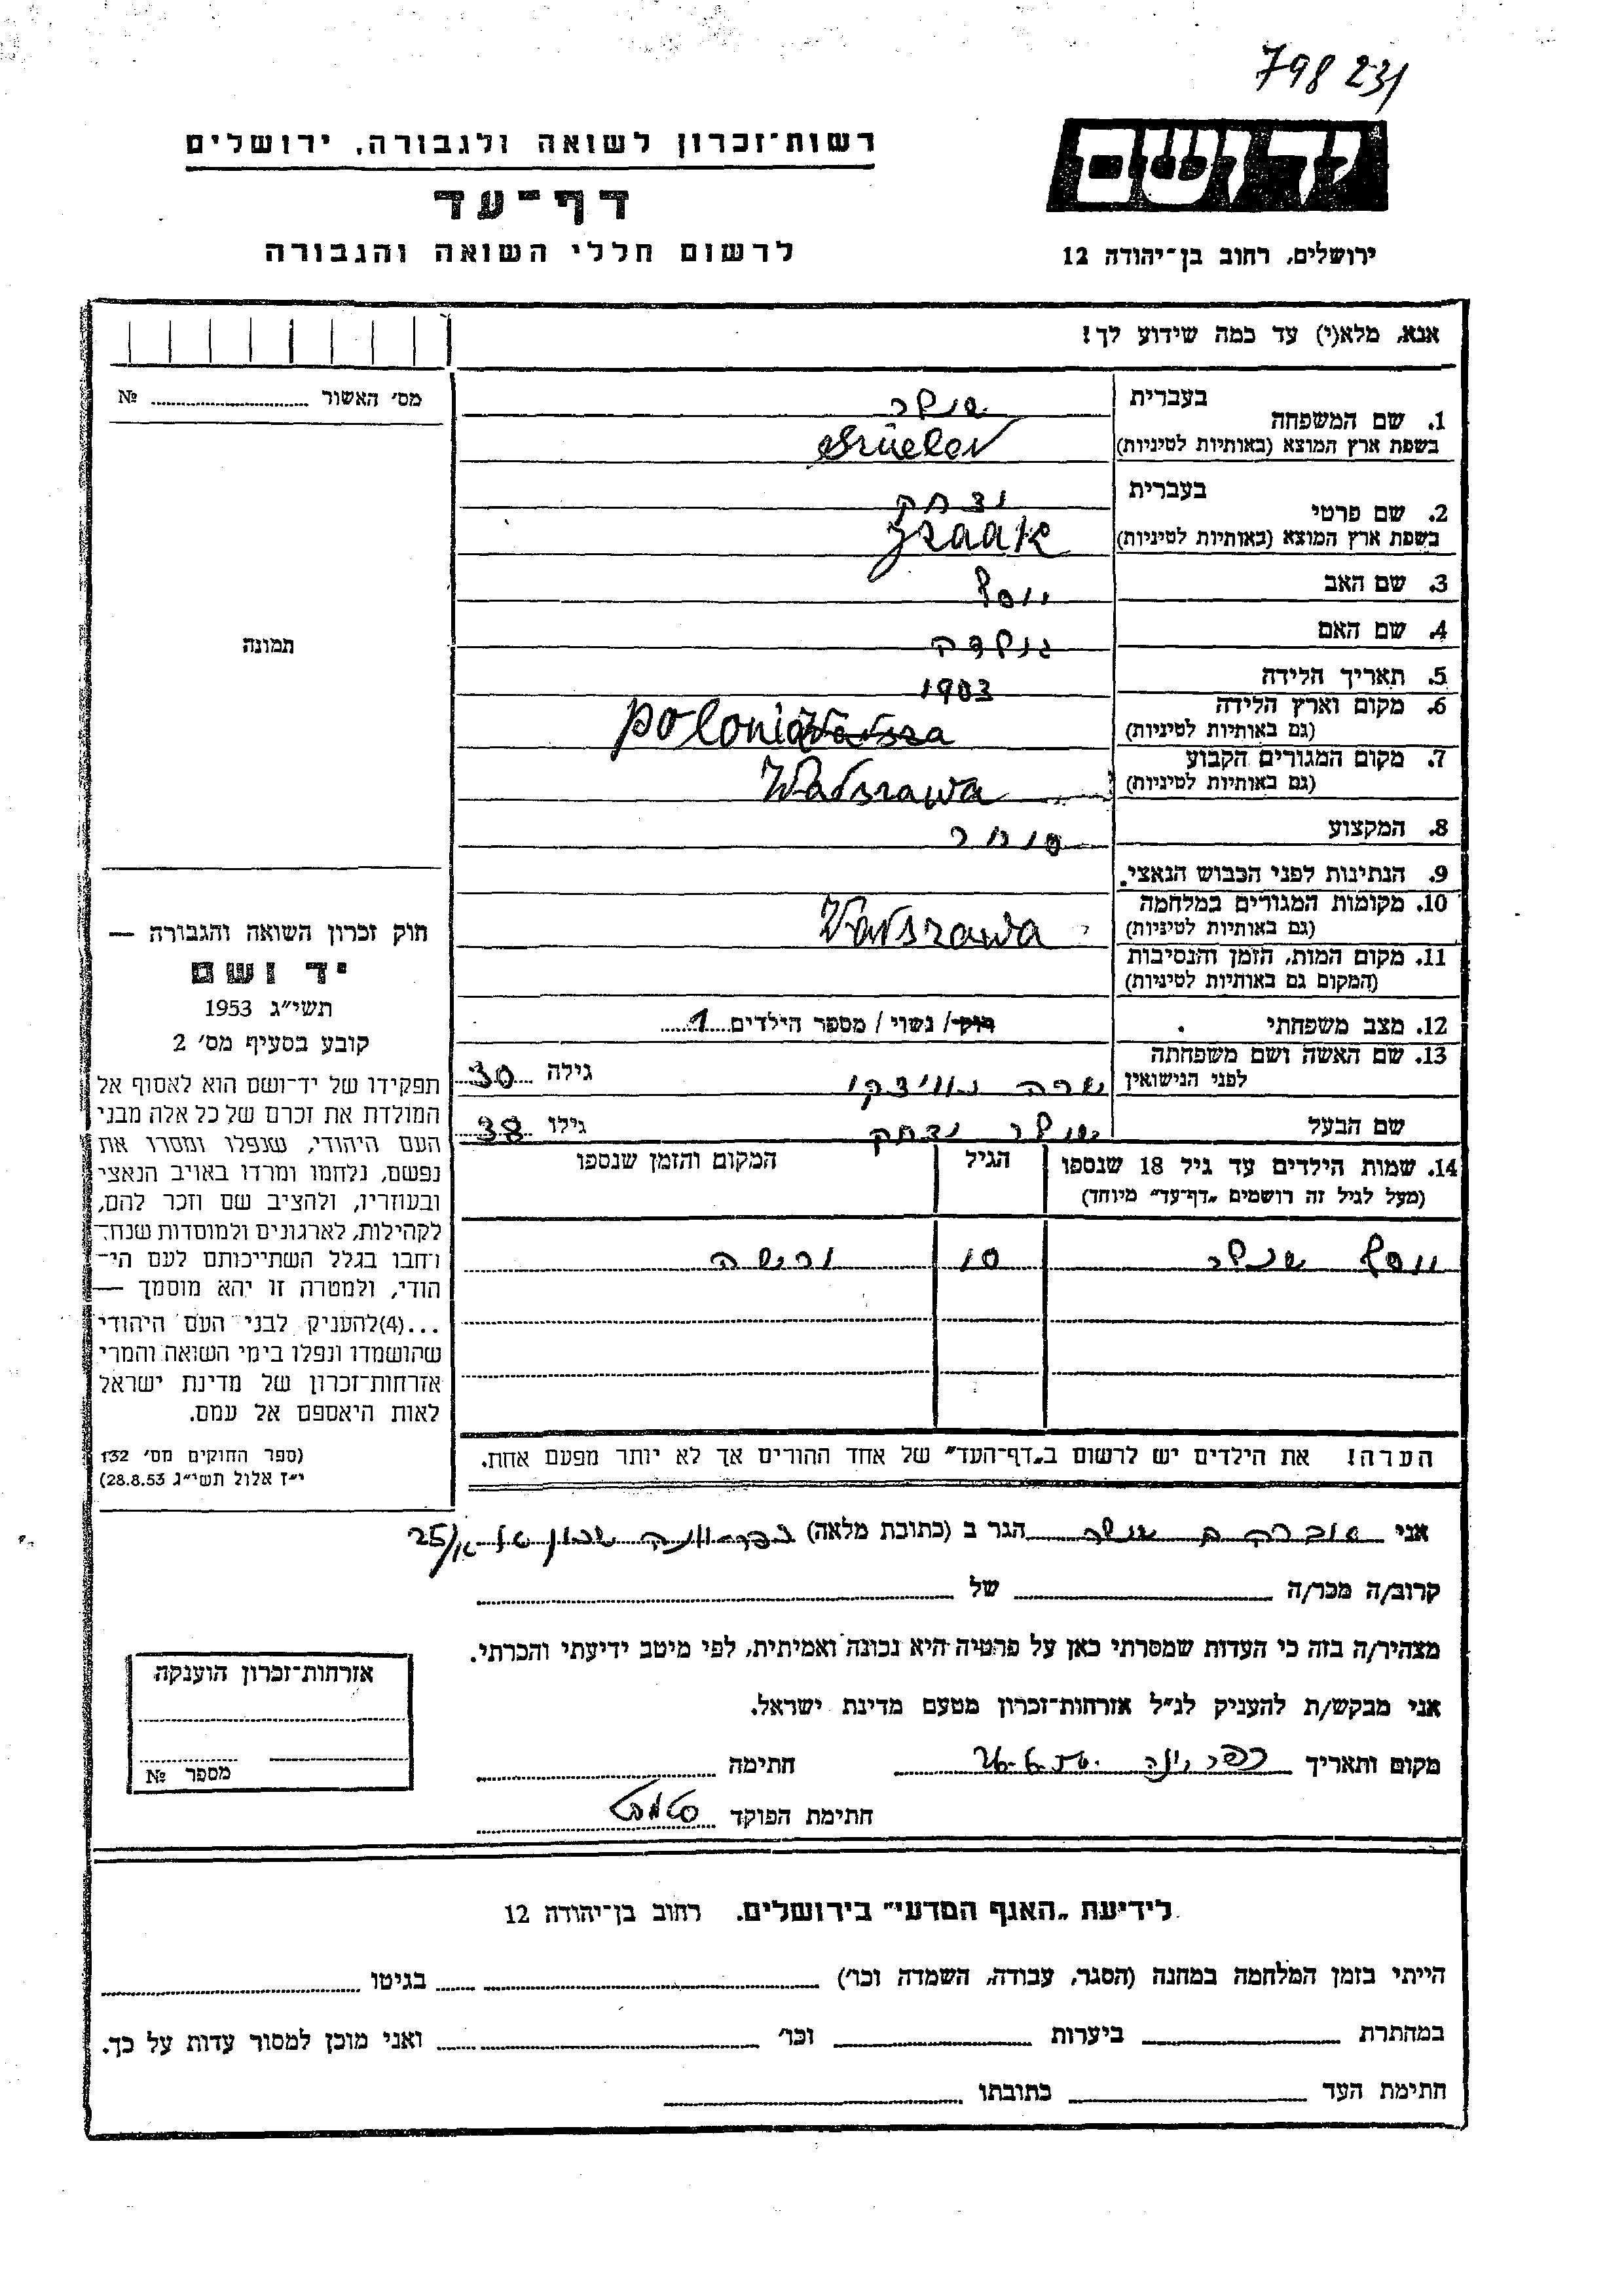 798 231
יד ושם
רשות־זכרון לשואה ולגבורה, ירושלים
דף־עד
לרשום חללי השואה והגבורה
ירושלים, רחוב בן־יהודה 12
אנא, מלא(י) עד כמה שידוע לך!
מס׳ האשור № 
1. שם המשפחה
בעברית
בשפת ארץ המוצא (באותיות לטיניות)
2. שם פרטי
בעברית יצחק
בשפת ארץ המוצא (באותיות לטיניות) Izaak
3. שם האב יוסף
4. שם האם גולדה
5. תאריך הלידה 1903
6. מקום וארץ הלידה polonia
(גם באותיות לטיניות)
7. מקום המגורים הקבוע Warszawa
(גם באותיות לטיניות)
8. המקצוע סוחר
9. הנתינות לפני הכבוש הנאצי.
10. מקומות המגורים במלחמה Warszawa
(גם באותיות לטיניות)
11. מקום המות, הזמן והנסיבות
(המקום גם באותיות לטיניות)
12. מצב משפחתי רווק / נשוי / מספר הילדים 1
13. שם האשה ושם משפחתה
לפני הנישואין שרה גילה 30
שם הבעל יצחק גילו 38
14. שמות הילדים עד גיל 18 שנספו
(מעל לגיל זה רושמים „דף־עד״ מיוחד)
הגיל
המקום והזמן שנספו
יוסף 10 ורשה
הערה! את הילדים יש לרשום ב„דף־העד״ של אחד ההורים אך לא יותר מפעם אחת.
תמונה
חוק זכרון השואה והגבורה —
יד ושם
תשי״ג 1953
קובע בסעיף מס׳ 2
תפקידו של יד־ושם הוא לאסוף אל
המולדת את זכרם של כל אלה מבני
העם היהודי, שנפלו ומסרו את
נפשם, נלחמו ומרדו באויב הנאצי
ובעוזריו, ולהציב שם וזכר להם,
לקהילות, לארגונים ולמוסדות שנח־
רחבו בגלל השתייכותם לעם הי־
הודי, ולמטרה זו יהא מוסמך —
...(4) להעניק לבני העם היהודי
שהושמדו ונפלו בימי השואה והמרי
אזרחות־זכרון של מדינת ישראל
לאות היאספם אל עמם.
(ספר החוקים מס׳ 132
י״ז אלול תשי״ג 28.8.53)
אני הגר ב (כתובת מלאה) 25/
קרוב/ה מכר/ה של
מצהיר/ה בזה כי העדות שמסרתי כאן על פרטיה היא נכונה ואמיתית, לפי מיטב ידיעתי והכרתי.
אני מבקש/ת להעניק לנ״ל אזרחות־זכרון מטעם מדינת ישראל.
מקום ותאריך חתימה
חתימת הפוקד
אזרחות־זכרון הוענקה
מספר №
לידיעת „האגף המדעי״ בירושלים. רחוב בן־יהודה 12
הייתי בזמן המלחמה במחנה (הסגר, עבודה, השמדה וכו׳) בגיטו
במחתרת ביערות וכו׳ ואני מוכן למסור עדות על כך.
חתימת העד כתובתו